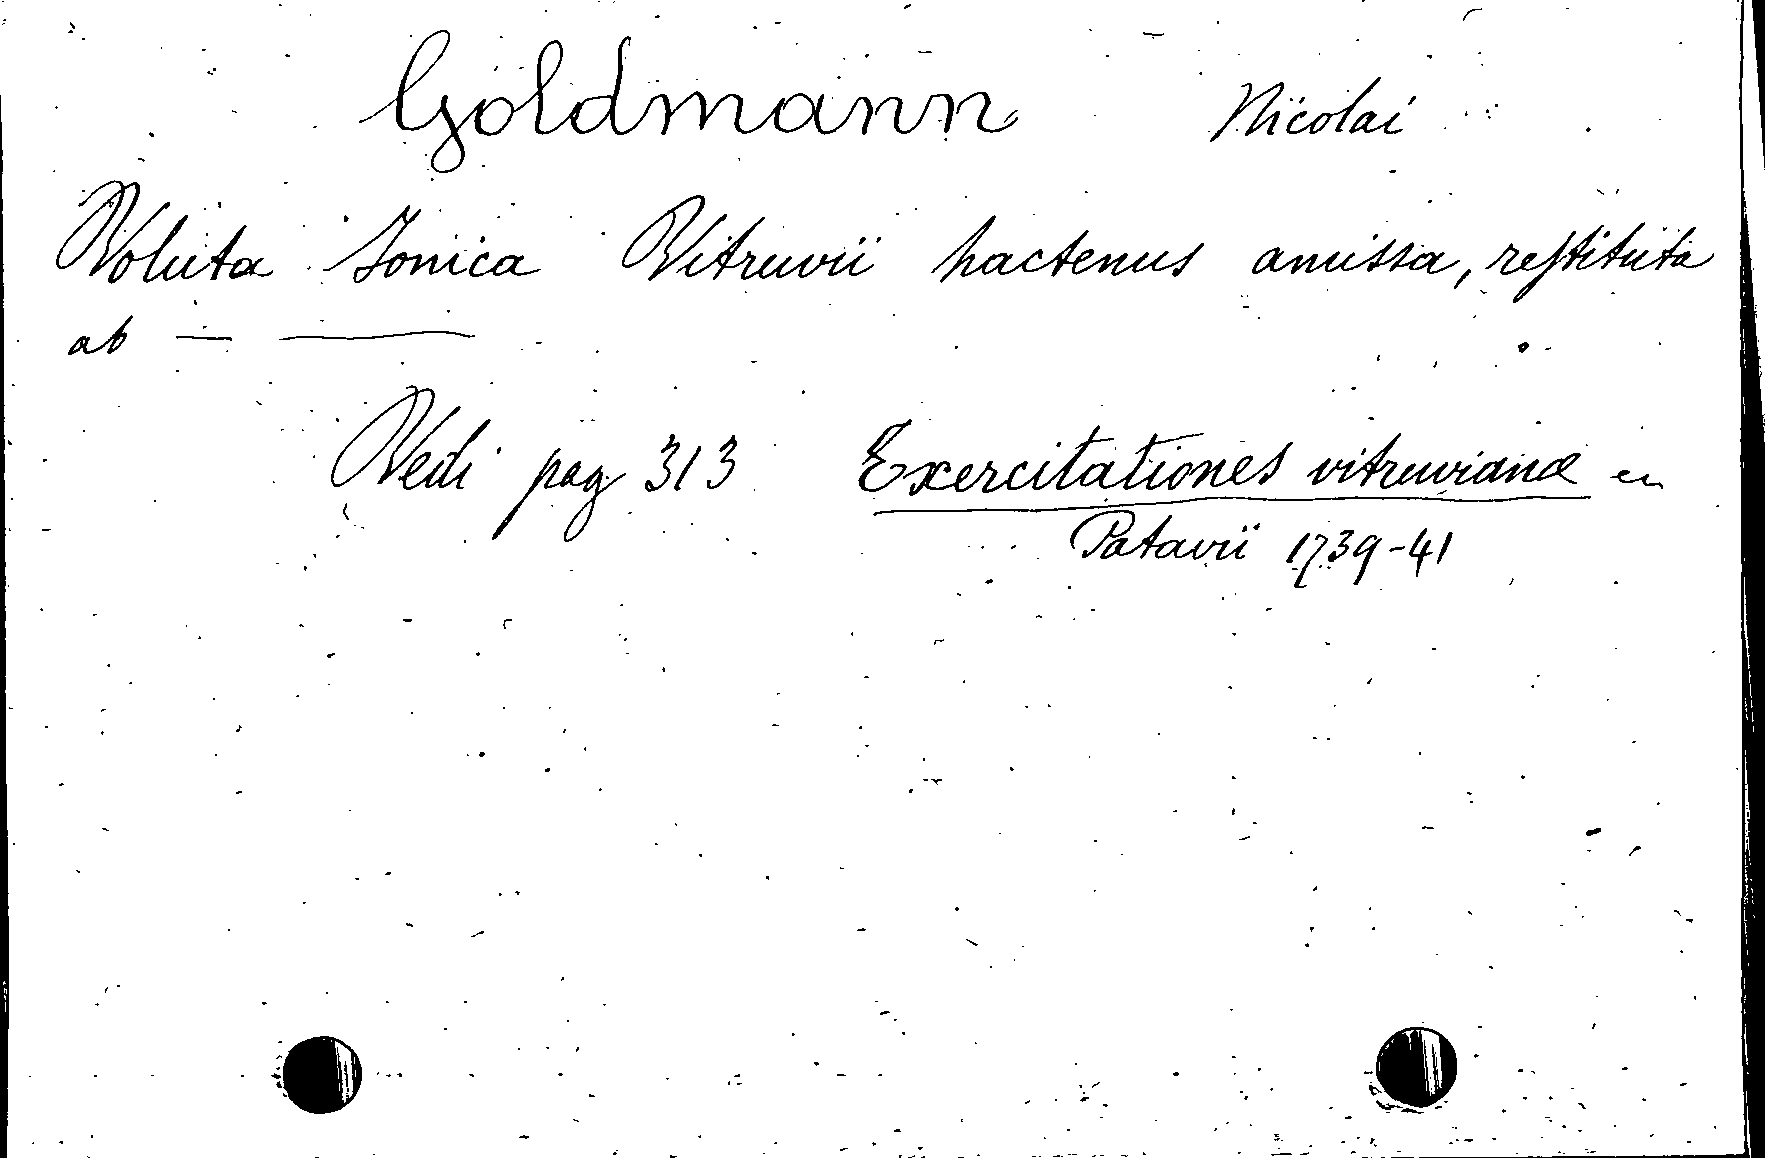 Goldmann Nicolai
Voluta Ionica Vitruvii hactenus amissa, restituta
ab — ———
Vedi pag 313 Exercitationes vitruvianæ en
Patavii 1739-41